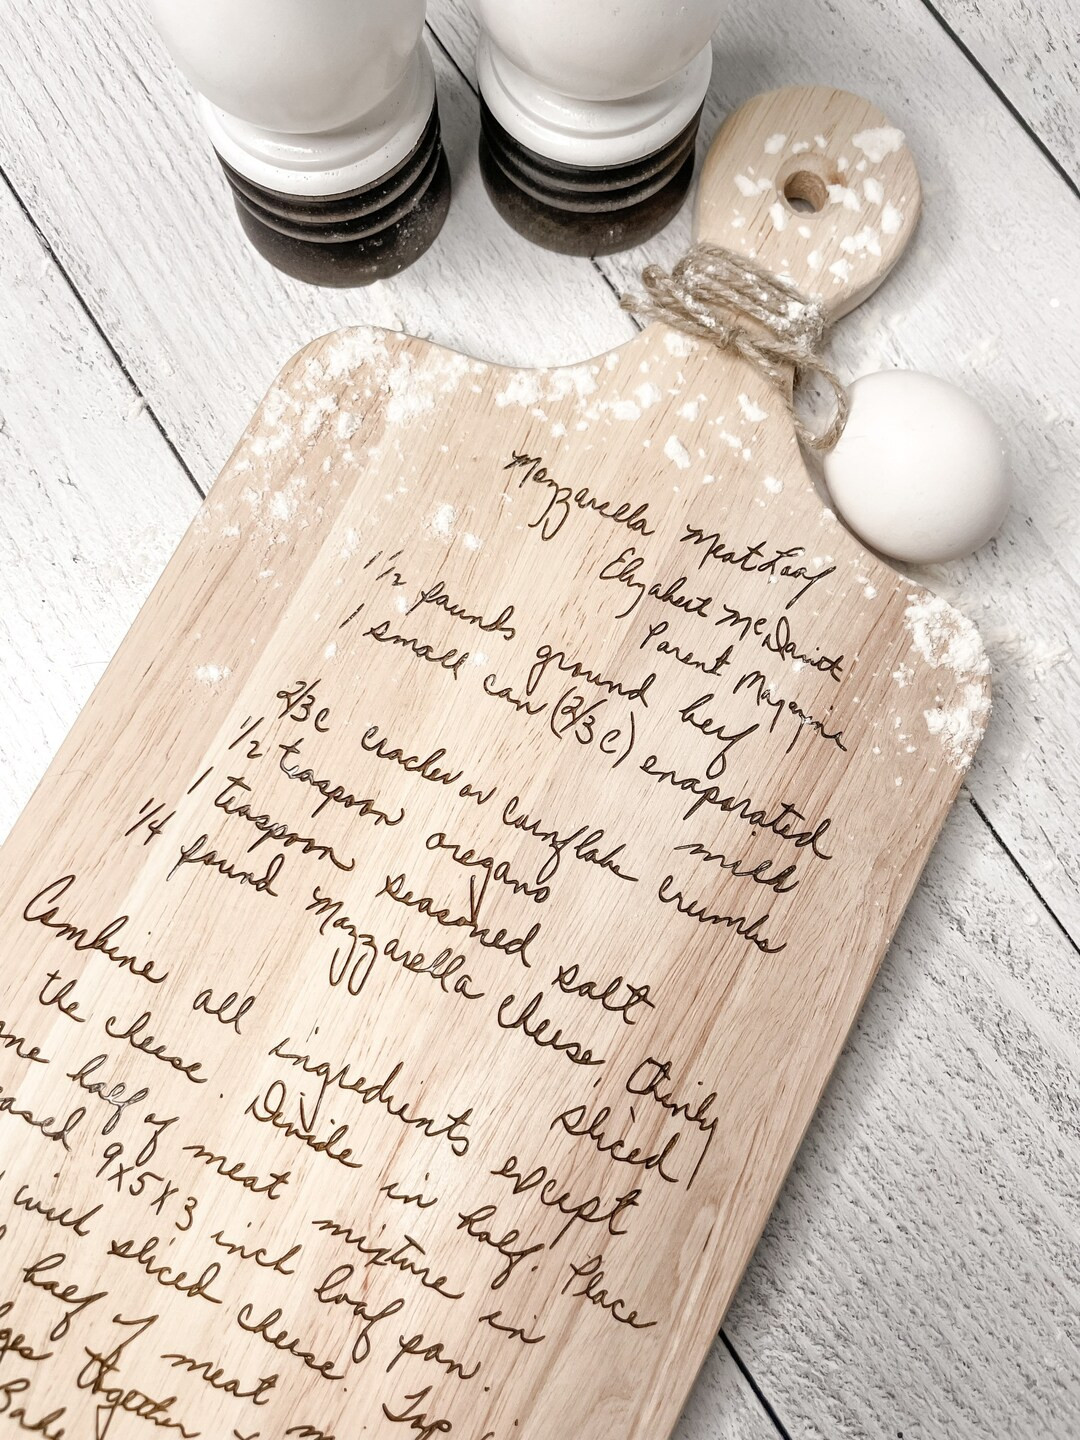 Mozzarella Meat Loaf
Elizabeth McDavitt
Parent Magazine
1 1/2 pounds ground beef
1 small can (2/3 c) evaporated
milk
2/3 c cracker or cornflake crumbs
1/2 teaspoon oregano
1 teaspoon seasoned salt
1/4 pound Mozzarella cheese, thinly
sliced
Combine all ingredients except
the cheese. Divide in half. Place
one half of meat mixture in
9X5X3 inch loaf pan.
with sliced cheese. Top
half of meat
together
Bake